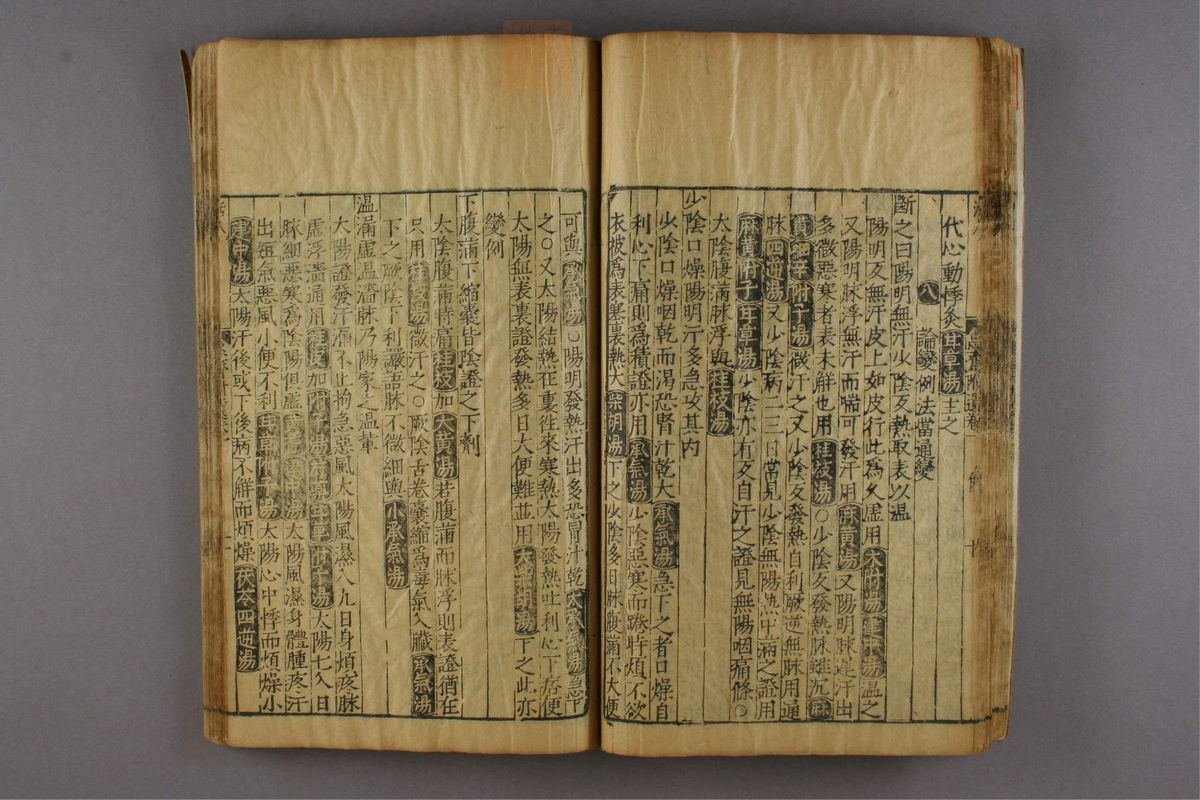 代心動悸灸甘草湯主之
八 論變例法當通變
斷之曰陽明無汗少陰反熱取表以溫
陽明反無汗皮上如皮行此爲久虛用 湯建中湯溫之
又陽明脉浮無汗而喘可發汗用麻黄湯又陽明脉遲汗出
多微惡寒者表未解也用桂枝湯○少陰反發熱脉雖沉麻
黄細辛附子湯微汗之又少陰反發熱自利厥逆無脉用通
脉四逆湯又少陰病二三日常見少陰無陽熱中滿之證用
麻黄附子甘草湯少陰亦有反自汗之證見無陽咽痛條○
太陰腹滿脉浮與桂枝湯
少陰口燥陽明汗多急攻其内
少陰口燥咽乾而渴恐腎汁乾大承氣湯急下之者口燥自
利心下痛則爲積證亦用承氣湯少陰惡寒而踡時煩不欲
衣被爲表寒裏熱大柴胡湯下之少陰多日脉腹滿不大便
可與承氣湯○陽明發熱汗出多恐胃汁乾大承氣湯急下
之○又太陽結熱在裏往來寒熱太陽發熱吐利心下痞便
太陽無表裏證發熱多日大便難並用大柴胡湯下之此亦
變例
下腹滿下縮囊皆陰證之下劑
太陰腹滿時痛桂枝加大黄湯若腹滿而脉浮則表證猶在
只用桂枝湯微汗之○厥陰舌卷囊縮爲毒氣入臟承氣湯
下之厥陰下利讝語脉不微細與小承氣湯
温漏虚温濇脉乃陽家之温軰
太陽證發汗漏不止拘急惡風太陽風濕八九日身煩疼脉
虚浮濇通用桂枝加附子湯 甘草附子湯太陽七八日
脉細惡寒爲陰陽俱虚 建中湯太陽風濕身體腫疼汗
出短氣惡風小便不利甘草附子湯太陽心中悸而煩燥小
建中湯太陽汗後或下後病不解而煩燥茯苓四逆湯